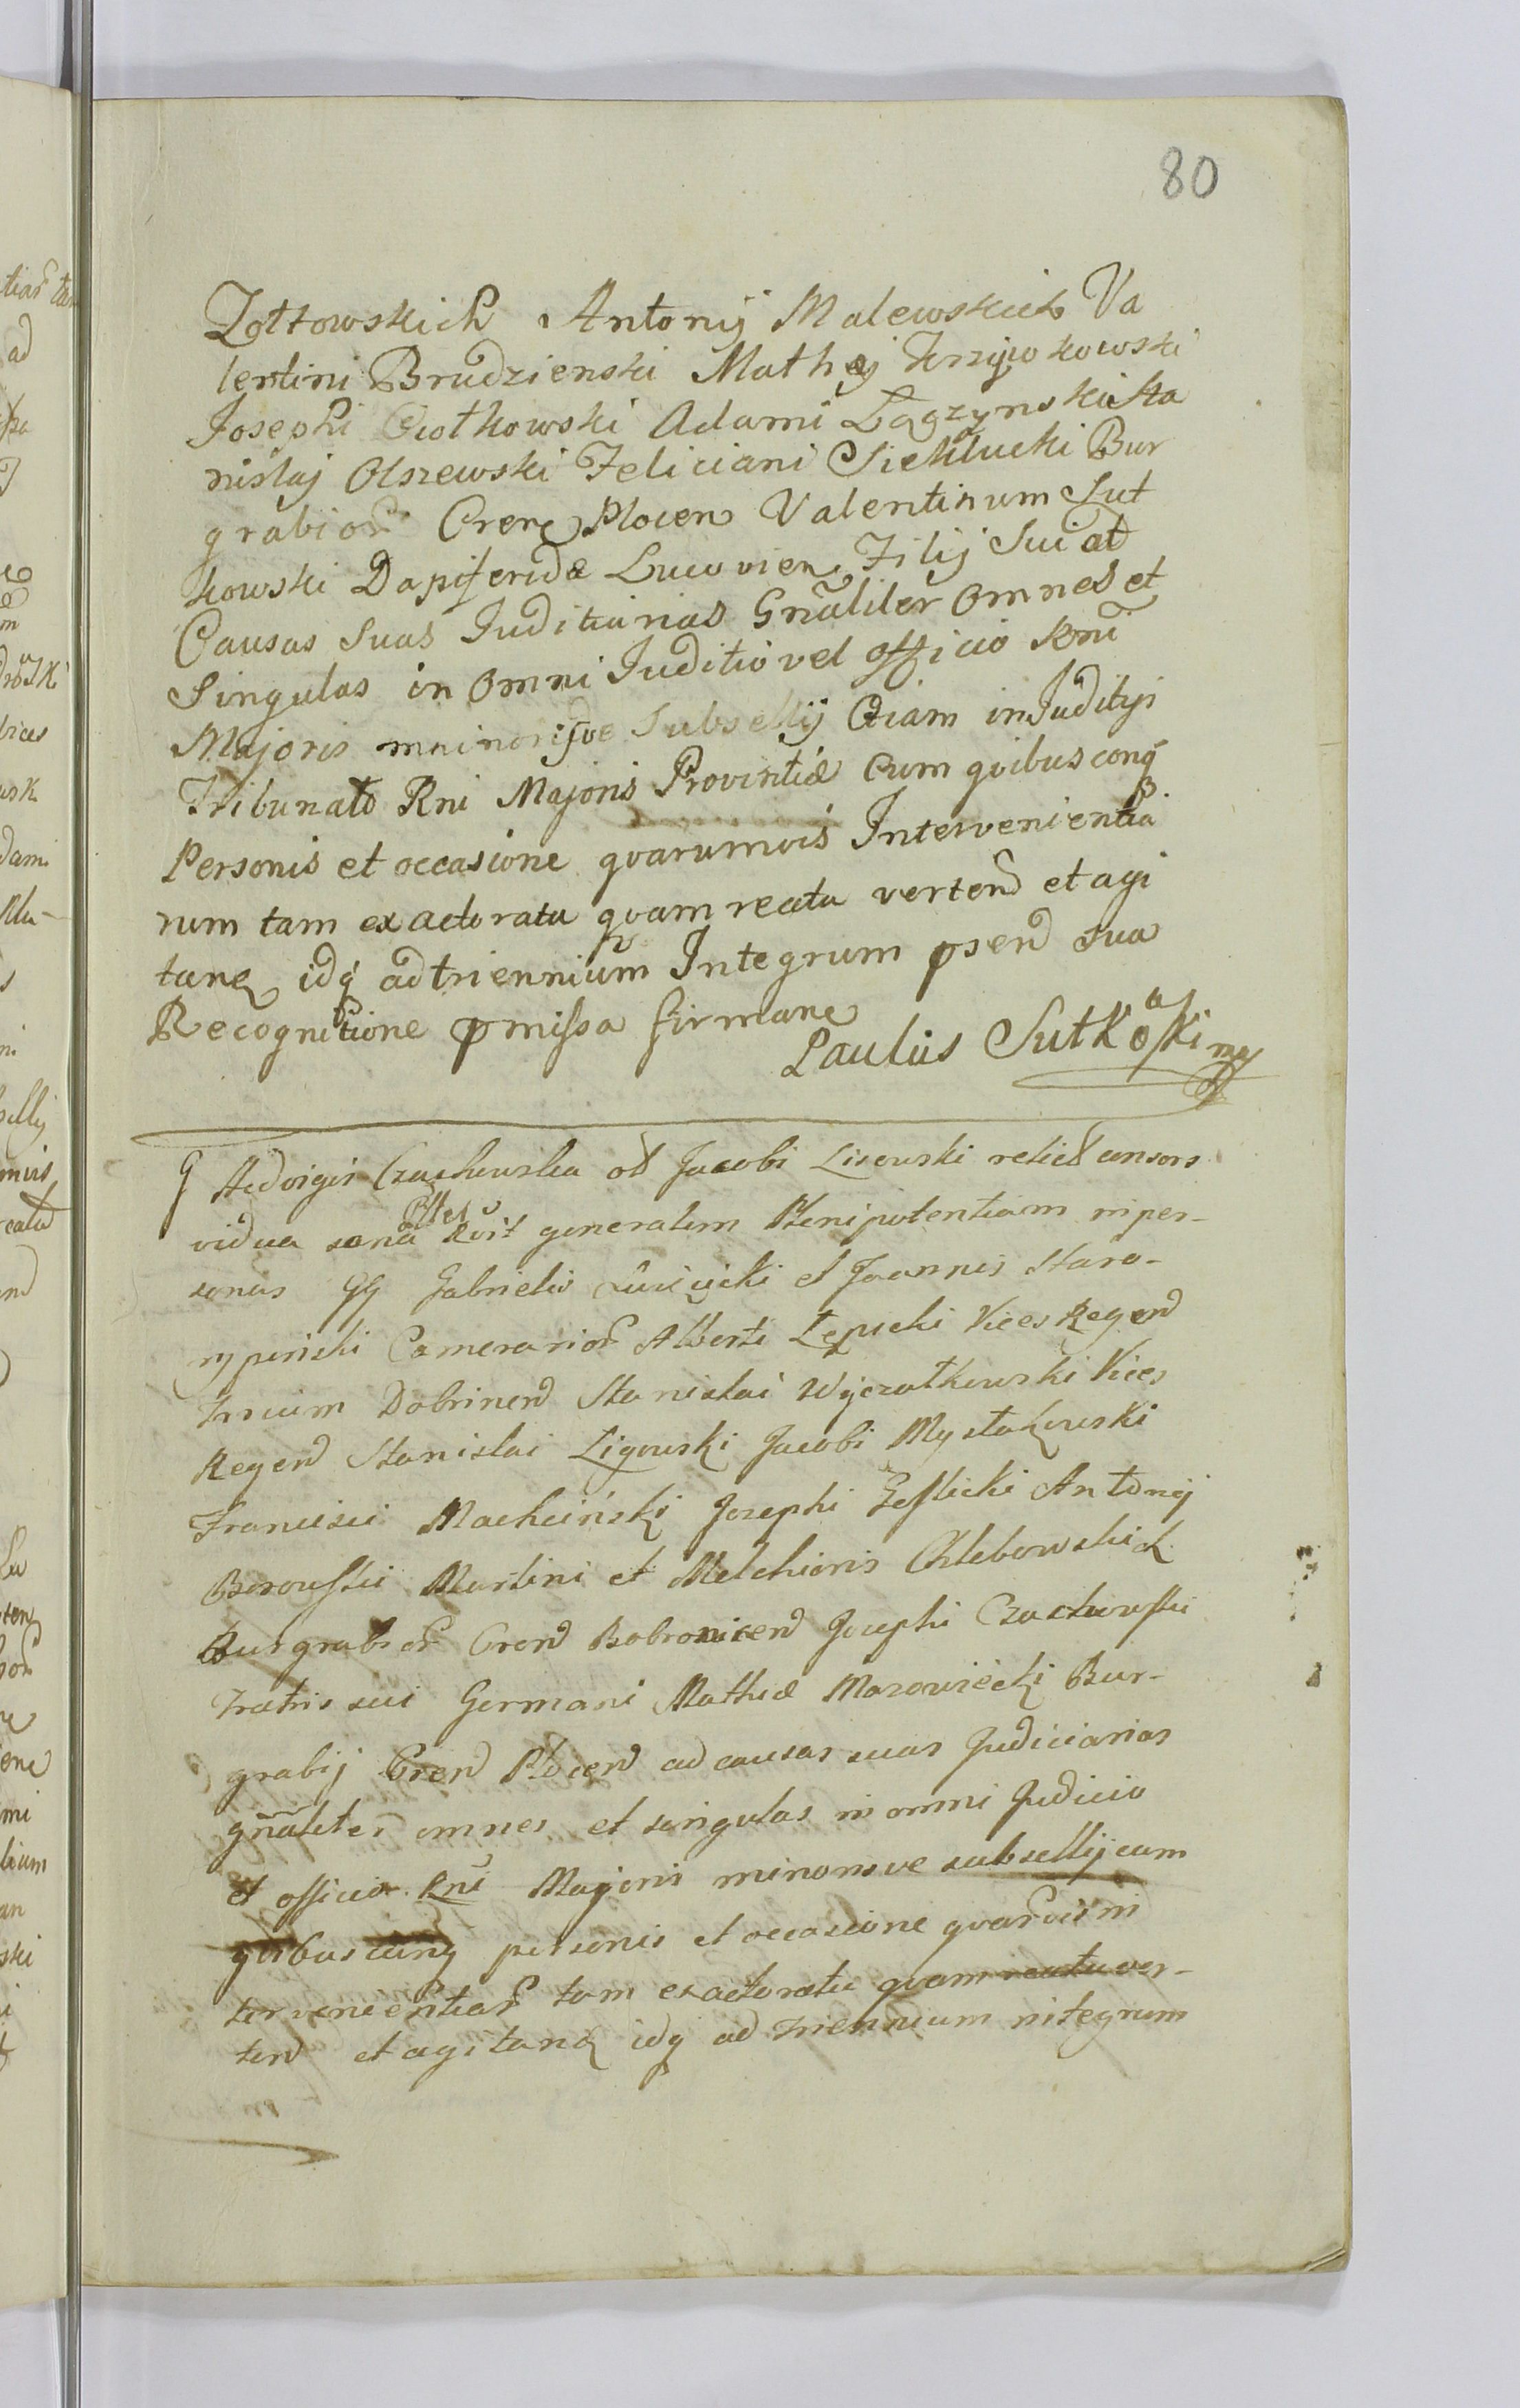 80
Zołtowskich Antonij Malewskich Va
lentini Brudzienski Mathej Krzywkowski
Josephi Ciołkowski Adami Łączynski Sta
nislaj Olszewski Feliciani Sieklucki Bur
grabior Crenc Plocen Valentinum Sut
kowski Dapiferidæ Lucovien Filij Sui ad
Causas Suas Juditiarias Gnãliter omnes et
Singulas in omni Juditio vel officio Rgni
Majoris minorisve Subsellij Etiam in Juditijs
Tribunato Rni Majoris Provintiæ Cum qvibusconq
Personis et occasione qvarumvis Intervenientia
rum tam ex actoratu qvam reatu vertend et agi
tanq idq ad triennium Integrum psend sua
Recognitione pmissa firmane
Paulus Sutkoski mp
G Hedvigis Czachowska od Jacobi Lisowski relict consors
vidua sana ttes Rovit generalem Plenipotentiam in per-
sonas GG Gabrielis et Joannis Staro-
rypinski Camerarior Alberti Łępicki Vices Regend
Trrium Dobrinend Stanislai Wyczałkowski Vices
Regend Stanislai Ligowski Jacobi Mystkowski
Francisci Machciński Josephi Zeslicki Antonij
Borowski Martini et Melchioris Chlebowskich
Burgrabior Crend Bobronicend Josephi Czachowski
Fratris sui Germani Mathiæ Mazowiecki Bur-
grabij Crend Plocend ad causas suas Judiciarias
gñaliter omnes et singulas in omni Judicio
et officio Rni Majoris minorisve subsellij cum
qvibuscunq personis et occasione qvarvis in
tervenientiar tam ex actoratu qvam reatu ver-
tend et agitanq idq ad triennium integrum